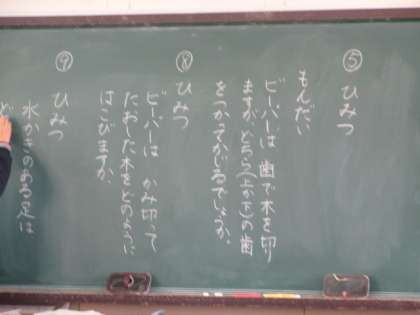 ⑤ ひみつ
もんだい
ビーバーは、歯で木を切り
ますが、どちら(上か下)の歯
をつかってかじるでしょうか。
⑧ ひみつ
ビーバーは かみ切って
たおした木をどのように
はこびますか。
⑨ ひみつ
水かきのある足は
ど